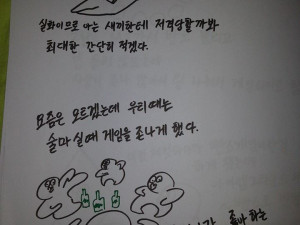 실화이므로 나는 새끼한테 저격당할까봐
최대한 간단히 적겠다.
요즘은 모르겠는데 우리때는
술마실때 게임을 존나게 했다.
하는